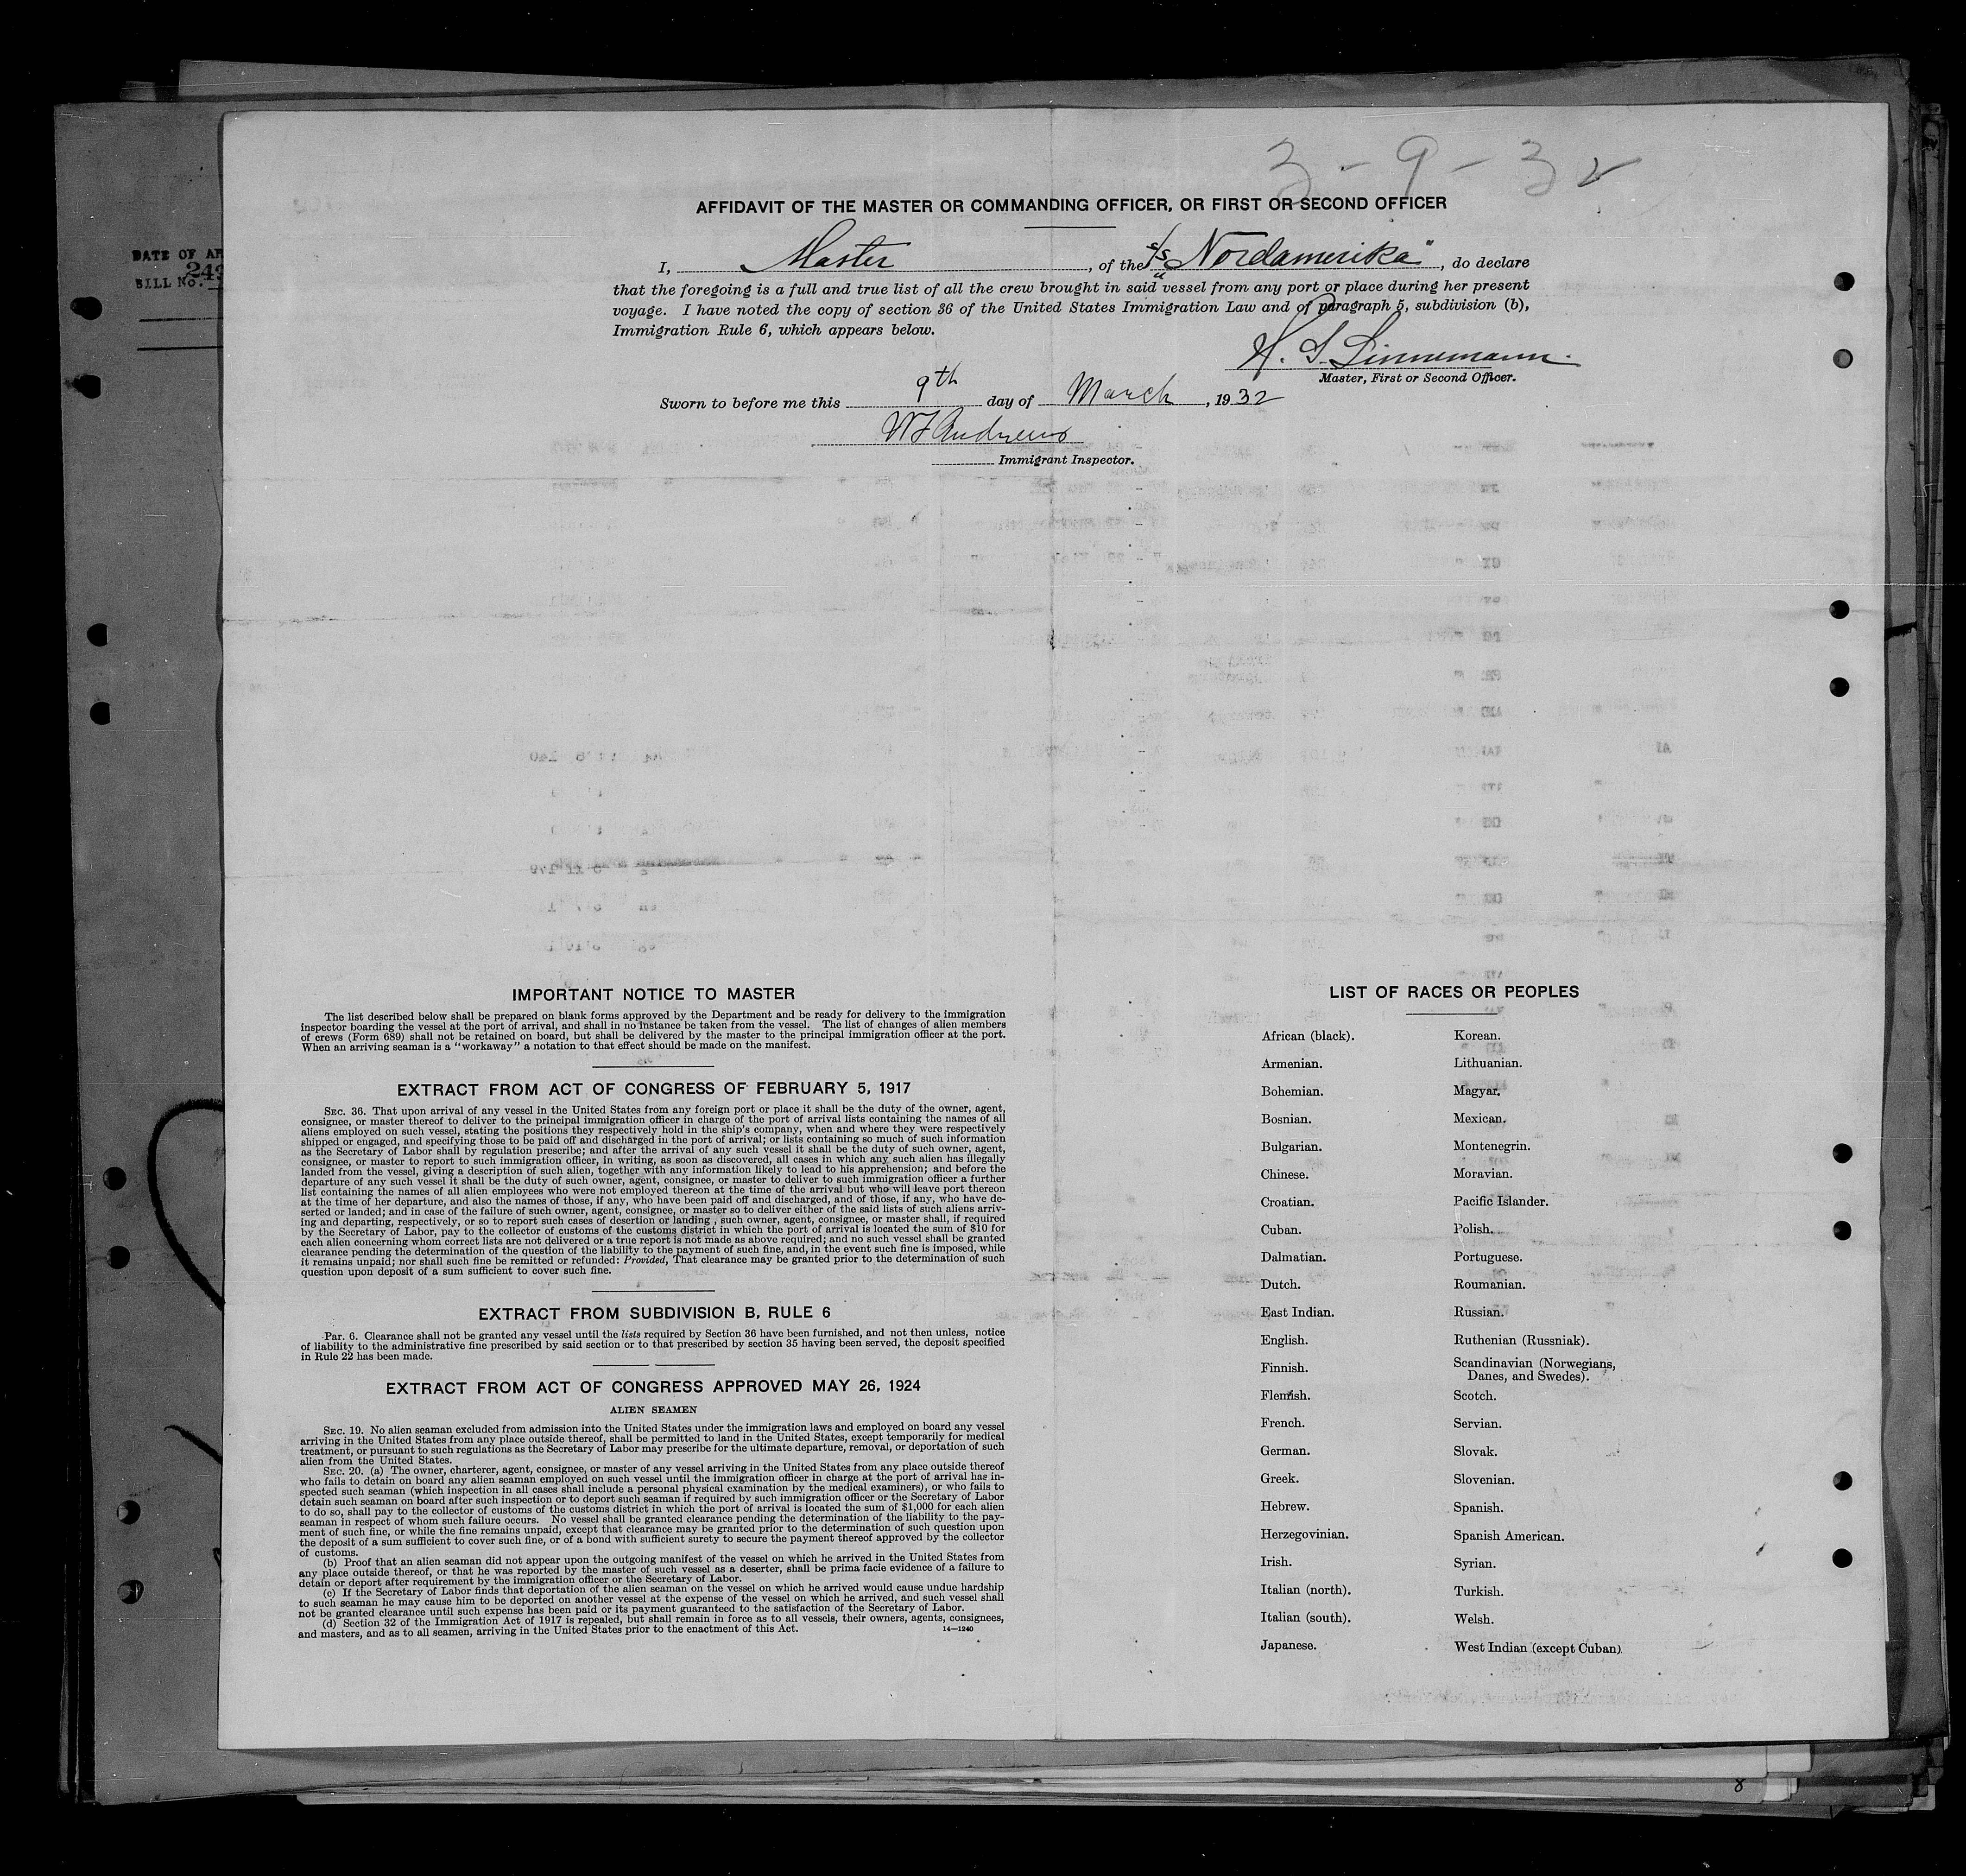 3 - 9 - 32
DATE OF AR
BILL No. 249
AFFIDAVIT OF THE MASTER OR COMMANDING OFFICER, OR FIRST OR SECOND OFFICER
I, Master, of the s/s "Nordamerika", do declare
that the foregoing is a full and true list of all the crew brought in said vessel from any port or place during her present
voyage. I have noted the copy of section 36 of the United States Immigration Law and of paragraph 5, subdivision (b),
Immigration Rule 6, which appears below.
H. S. Linnemann.
Master, First or Second Officer.
Sworn to before me this 9th day of March, 1932
W F Andrews
Immigrant Inspector.
IMPORTANT NOTICE TO MASTER
The list described below shall be prepared on blank forms approved by the Department and be ready for delivery to the immigration
inspector boarding the vessel at the port of arrival, and shall in no instance be taken from the vessel. The list of changes of alien members
of crews (Form 689) shall not be retained on board, but shall be delivered by the master to the principal immigration officer at the port.
When an arriving seaman is a "workaway" a notation to that effect should be made on the manifest.
EXTRACT FROM ACT OF CONGRESS OF FEBRUARY 5, 1917
SEC. 36. That upon arrival of any vessel in the United States from any foreign port or place it shall be the duty of the owner, agent,
consignee, or master thereof to deliver to the principal immigration officer in charge of the port of arrival lists containing the names of all
aliens employed on such vessel, stating the positions they respectively hold in the ship's company, when and where they were respectively
shipped or engaged, and specifying those to be paid off and discharged in the port of arrival; or lists containing so much of such information
as the Secretary of Labor shall by regulation prescribe; and after the arrival of any such vessel it shall be the duty of such owner, agent,
consignee, or master to report to such immigration officer, in writing, as soon as discovered, all cases in which any such alien has illegally
landed from the vessel, giving a description of such alien, together with any information likely to lead to his apprehension; and before the
departure of any such vessel it shall be the duty of such owner, agent, consignee, or master to deliver to such immigration officer a further
list containing the names of all alien employees who were not employed thereon at the time of the arrival but who will leave port thereon
at the time of her departure, and also the names of those, if any, who have been paid off and discharged, and of those, if any, who have de-
serted or landed; and in case of the failure of such owner, agent, consignee, or master so to deliver either of the said lists of such aliens arriv-
ing and departing, respectively, or so to report such cases of desertion or landing, such owner, agent, consignee, or master shall, if required
by the Secretary of Labor, pay to the collector of customs of the customs district in which the port of arrival is located the sum of $10 for
each alien concerning whom correct lists are not delivered or a true report is not made as above required; and no such vessel shall be granted
clearance pending the determination of the question of the liability to the payment of such fine, and, in the event such fine is imposed, while
it remains unpaid; nor shall such fine be remitted or refunded: Provided, That clearance may be granted prior to the determination of such
question upon deposit of a sum sufficient to cover such fine.
EXTRACT FROM SUBDIVISION B, RULE 6
Par. 6. Clearance shall not be granted any vessel until the lists required by Section 36 have been furnished, and not then unless, notice
of liability to the administrative fine prescribed by said section or to that prescribed by section 35 having been served, the deposit specified
in Rule 22 has been made.
EXTRACT FROM ACT OF CONGRESS APPROVED MAY 26, 1924
ALIEN SEAMEN
SEC. 19. No alien seaman excluded from admission into the United States under the immigration laws and employed on board any vessel
arriving in the United States from any place outside thereof, shall be permitted to land in the United States, except temporarily for medical
treatment, or pursuant to such regulations as the Secretary of Labor may prescribe for the ultimate departure, removal, or deportation of such
alien from the United States.
SEC. 20. (a) The owner, charterer, agent, consignee, or master of any vessel arriving in the United States from any place outside thereof
who fails to detain on board any alien seaman employed on such vessel until the immigration officer in charge at the port of arrival has in-
spected such seaman (which inspection in all cases shall include a personal physical examination by the medical examiners), or who fails to
detain such seaman on board after such inspection or to deport such seaman if required by such immigration officer or the Secretary of Labor
to do so, shall pay to the collector of customs of the customs district in which the port of arrival is located the sum of $1,000 for each alien
seaman in respect of whom such failure occurs. No vessel shall be granted clearance pending the determination of the liability to the pay-
ment of such fine, or while the fine remains unpaid, except that clearance may be granted prior to the determination of such question upon
the deposit of a sum sufficient to cover such fine, or of a bond with sufficient surety to secure the payment thereof approved by the collector
of customs.
(b) Proof that an alien seaman did not appear upon the outgoing manifest of the vessel on which he arrived in the United States from
any place outside thereof, or that he was reported by the master of such vessel as a deserter, shall be prima facie evidence of a failure to
detain or deport after requirement by the immigration officer or the Secretary of Labor.
(c) If the Secretary of Labor finds that deportation of the alien seaman on the vessel on which he arrived would cause undue hardship
to such seaman he may cause him to be deported on another vessel at the expense of the vessel on which he arrived, and such vessel shall
not be granted clearance until such expense has been paid or its payment guaranteed to the satisfaction of the Secretary of Labor.
(d) Section 32 of the Immigration Act of 1917 is repealed, but shall remain in force as to all vessels, their owners, agents, consignees,
and masters, and as to all seamen, arriving in the United States prior to the enactment of this Act.
14—1240
LIST OF RACES OR PEOPLES
African (black).
Armenian.
Bohemian.
Bosnian.
Bulgarian.
Chinese.
Croatian.
Cuban.
Dalmatian.
Dutch.
East Indian.
English.
Finnish.
Flemish.
French.
German.
Greek.
Hebrew.
Herzegovinian.
Irish.
Italian (north).
Italian (south).
Japanese.
Korean.
Lithuanian.
Magyar.
Mexican.
Montenegrin.
Moravian.
Pacific Islander.
Polish.
Portuguese.
Roumanian.
Russian.
Ruthenian (Russniak).
Scandinavian (Norwegians,
Danes, and Swedes).
Scotch.
Servian.
Slovak.
Slovenian.
Spanish.
Spanish American.
Syrian.
Turkish.
Welsh.
West Indian (except Cuban).
8